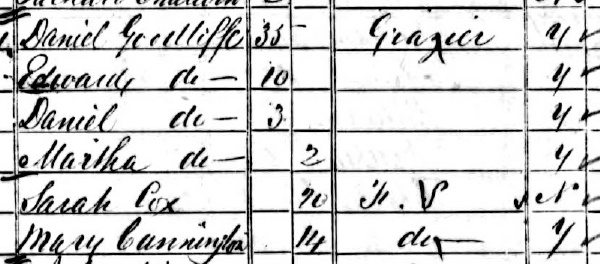 Daniel Goodliffe 35 Grazier Y
Edward do 10 Y
Daniel do 3 Y
Martha do 2 Y
Sarah Cox 20 F. S N
Mary Cannington 14 do Y